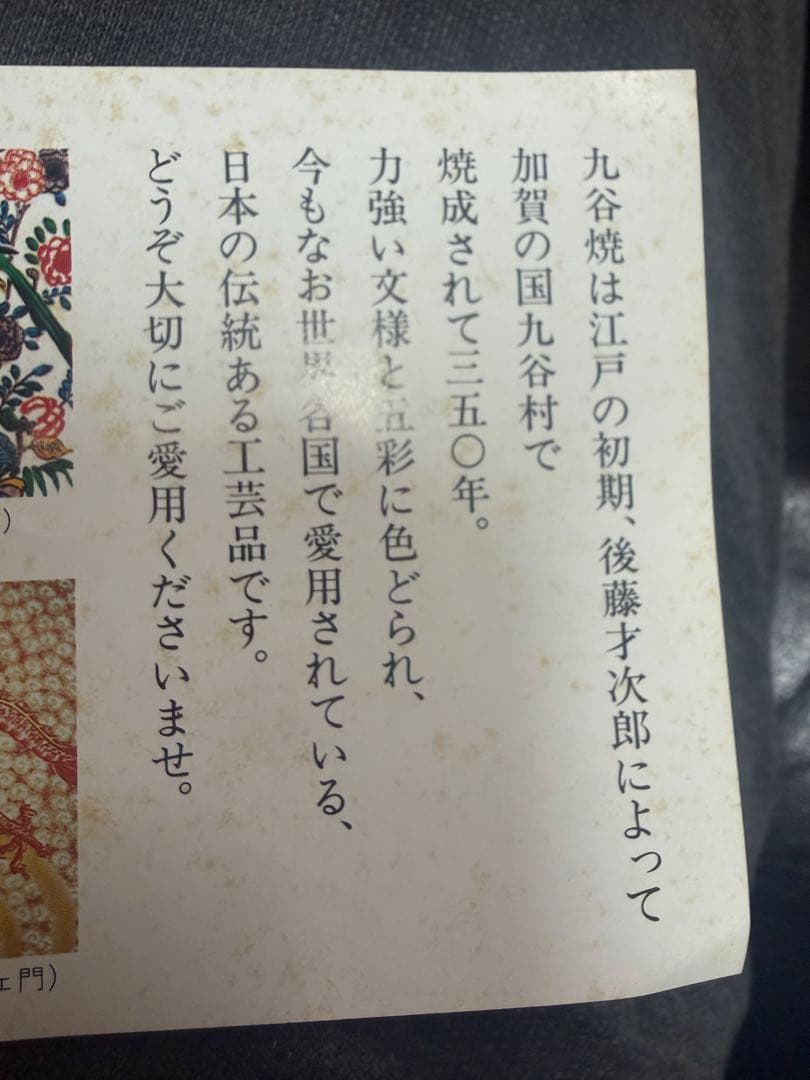 九谷焼は江戸の初期、後藤才次郎によって
加賀の国九谷村で
焼成されて三五〇年。
力強い文様と五彩に色どられ、
今もなお世界各国で愛用されている、
日本の伝統ある工芸品です。
どうぞ大切にご愛用くださいませ。
)
ェ門)